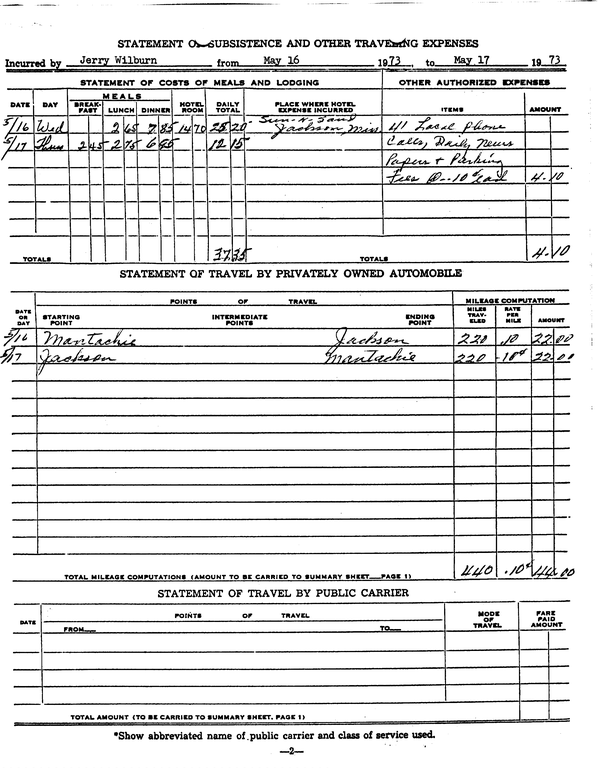 STATEMENT OF SUBSISTENCE AND OTHER TRAVELING EXPENSES
Incurred by Jerry Wilburn from May 16 1973, to May 17 1973
STATEMENT OF COSTS OF MEALS AND LODGING OTHER AUTHORIZED EXPENSES
DATE DAY MEALS BREAK-FAST LUNCH DINNER HOTEL ROOM DAILY TOTAL PLACE WHERE HOTEL EXPENSE INCURRED ITEMS AMOUNT
5/16 Wed 2 65 7 85 14 70 25 20 Sun-N-Sand Jackson, Miss 41 Local Phone
5/17 Thurs 2 45 2 75 6 95 12 15 Calls, Daily News
Papers & Parking
Fees @ .10 Each 4.10
TOTALS 37 35 TOTALS 4.10
STATEMENT OF TRAVEL BY PRIVATELY OWNED AUTOMOBILE
DATE OR DAY POINTS OF TRAVEL MILEAGE COMPUTATION
STARTING POINT INTERMEDIATE POINTS ENDING POINT MILES TRAV-ELED RATE PER MILE AMOUNT
5/16 Mantachie Jackson 220 .10 22.00
5/17 Jackson Mantachie 220 .10¢ 22.00
TOTAL MILEAGE COMPUTATIONS (AMOUNT TO BE CARRIED TO SUMMARY SHEET PAGE 1) 440 .10¢ 44.00
STATEMENT OF TRAVEL BY PUBLIC CARRIER
DATE POINTS OF TRAVEL MODE OF TRAVEL FARE PAID AMOUNT
FROM TO
TOTAL AMOUNT (TO BE CARRIED TO SUMMARY SHEET, PAGE 1)
*Show abbreviated name of public carrier and class of service used.
—2—